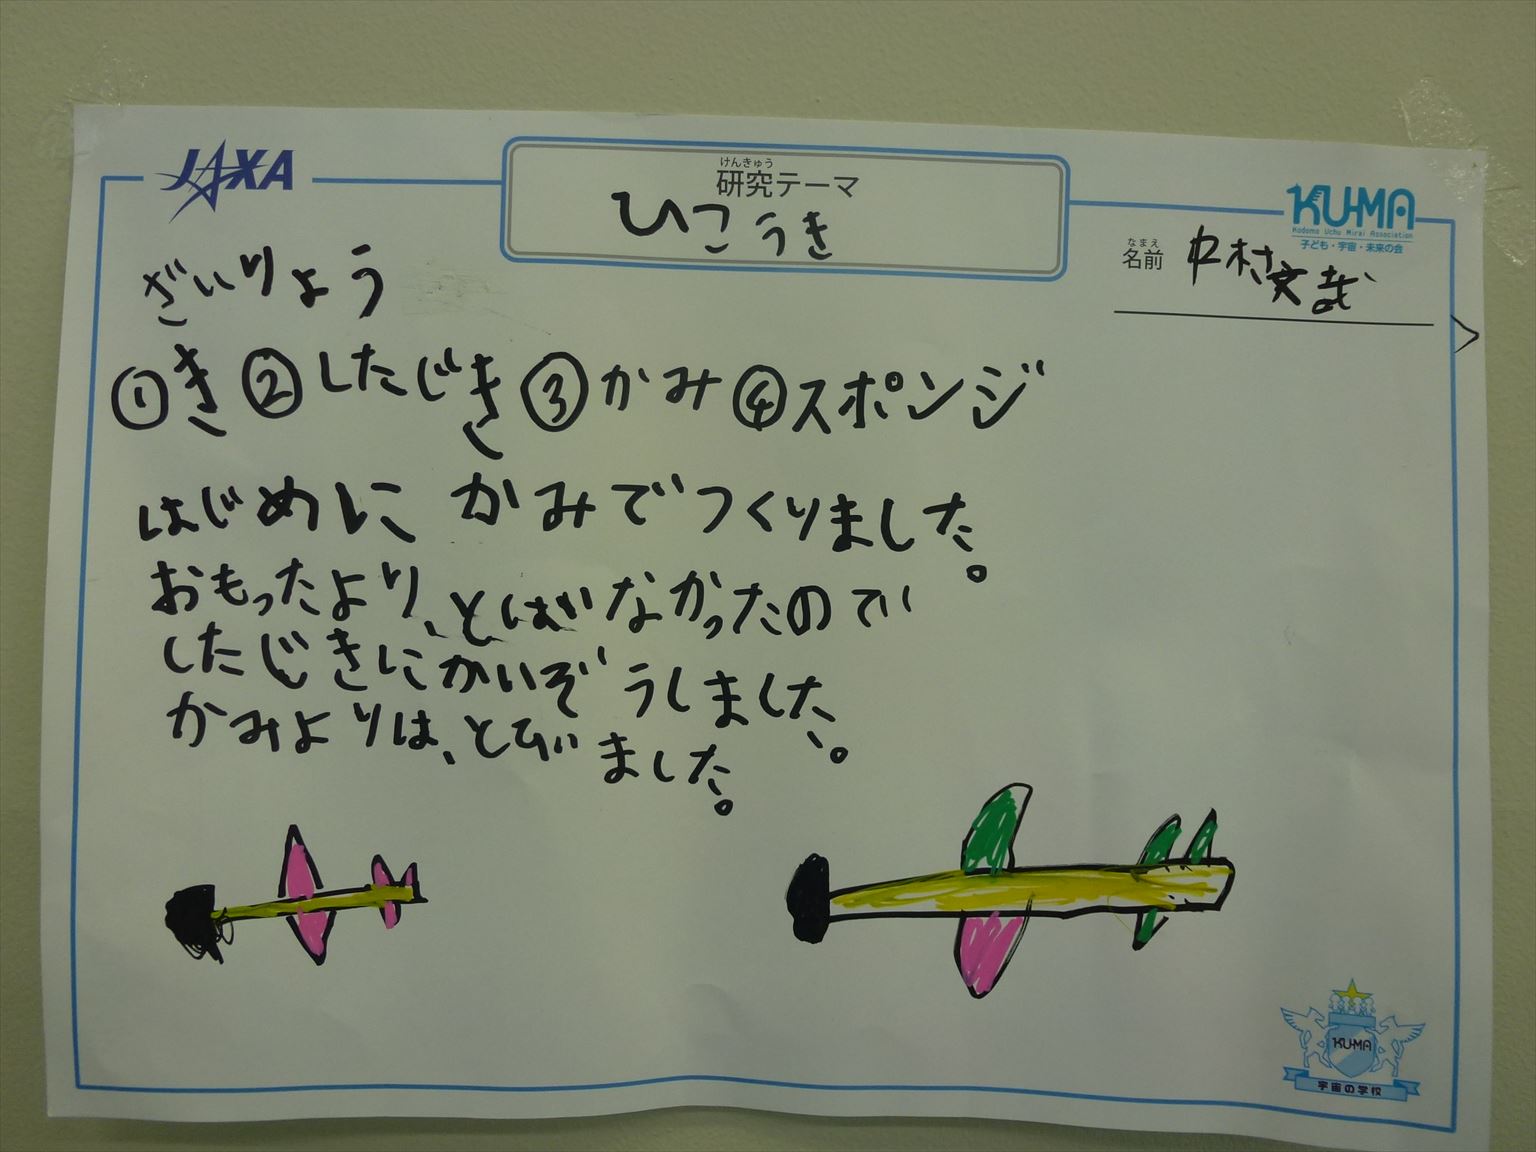 JAXA
けんきゅう
研究テーマ
ひこうき
KU-MA
Kodomo Uchu Mirai Association
子ども・宇宙・未来の会
なまえ
名前 中村文哉
ざいりょう
①き②したじき③かみ④スポンジ
はじめに かみでつくりました。
おもったより、とばなかったので
したじきにかいぞうしました。
かみよりは、とびました。
KU-MA
宇宙の学校